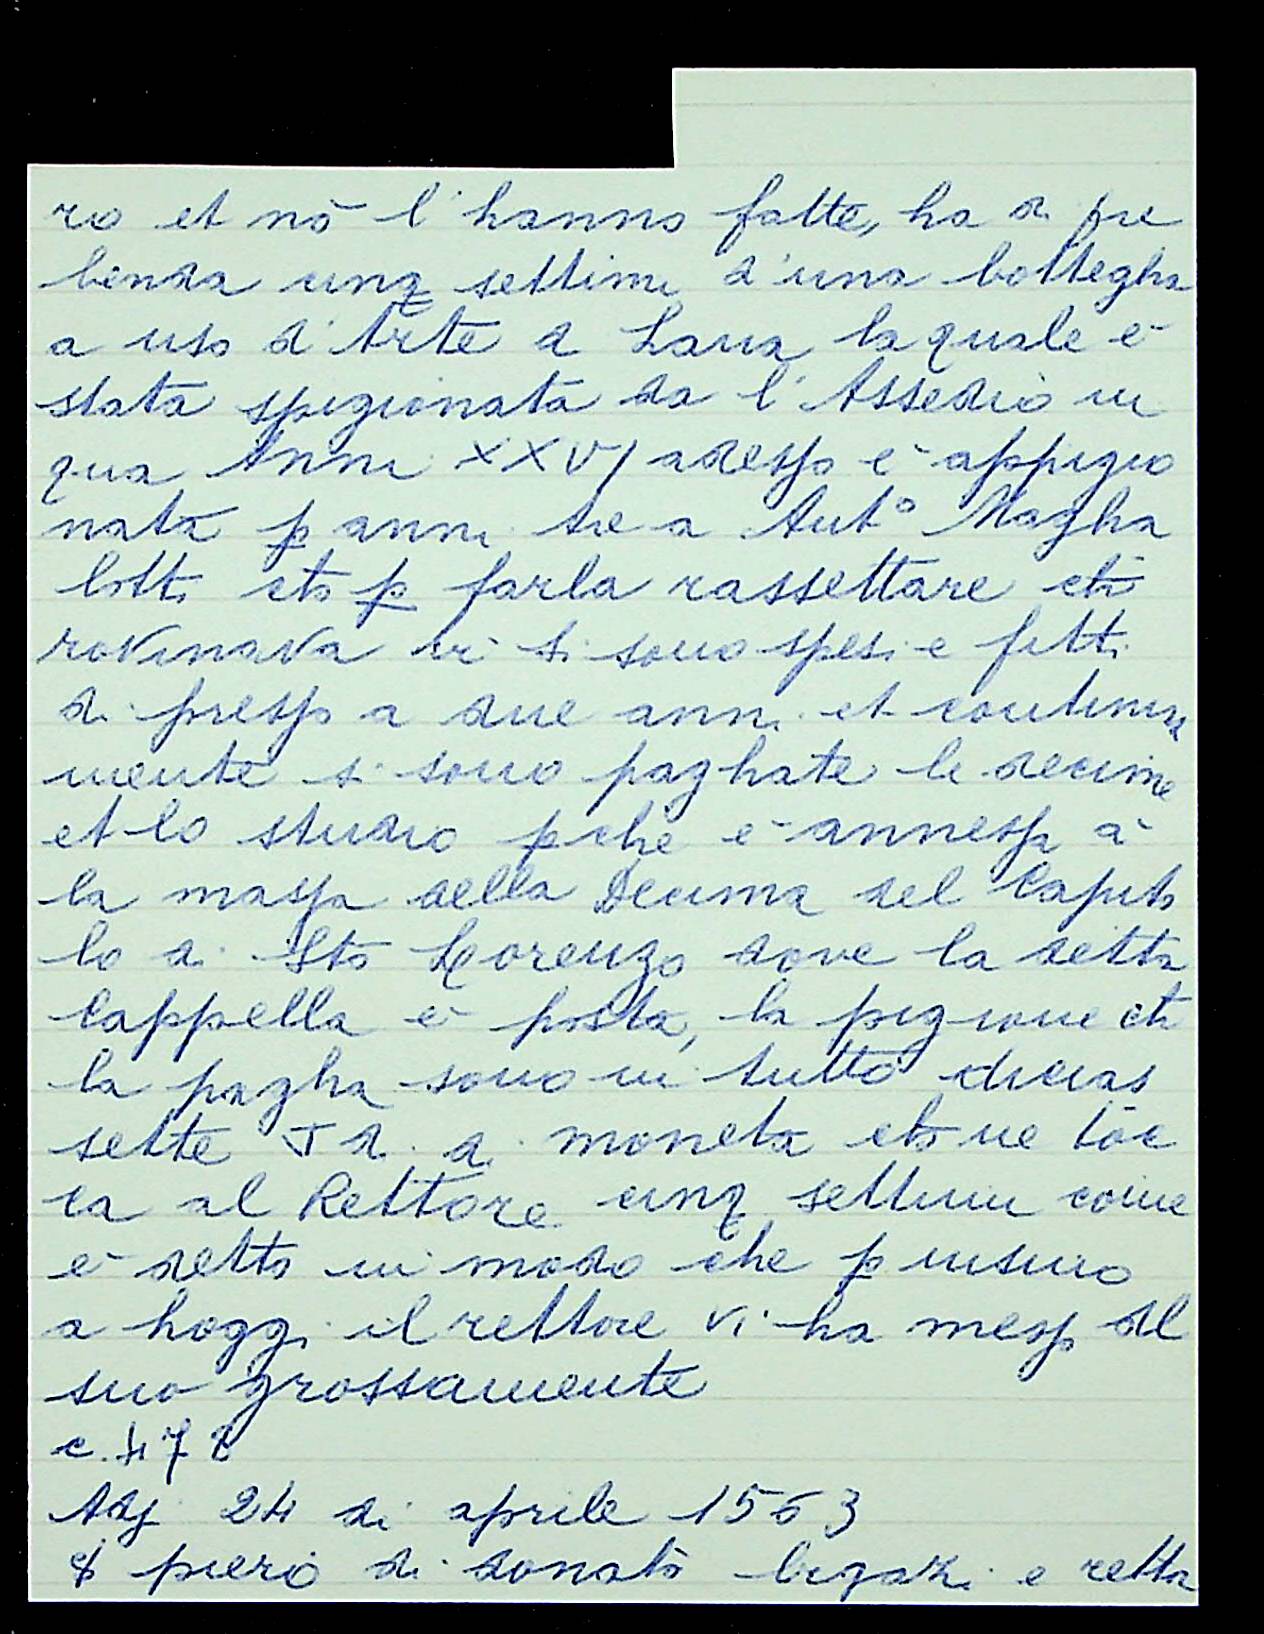 ro et nō l'hanno fatte, ha di pre
benda cinq settimi d'una bottegha
a uso d'Arte di Lana la quale è
stata spigionata da l'Assedio in
qua Anni XXVJ adesso è appigio
nata p anni tre a Ant° Magha
lotti et p farla rassettare ch
rovinava vi si sono spesi e fitti
di presso a due anni et continua
mente si sono paghate le decime
et lo studio pche è annessa a
la massa della Decima del Capito
lo di Sto Lorenzo dove la detta
Cappella è posta, la pigione ch
la pagha sono in tutto dicias
sette di moneta ne toc
ca al Rettore cinq settimi come
è detto in modo che p insino
a hoggi il rettore vi ha messo del
suo grossamente
c. 478
Adj 24 di aprile 1563
piero di donato bigazi e retto